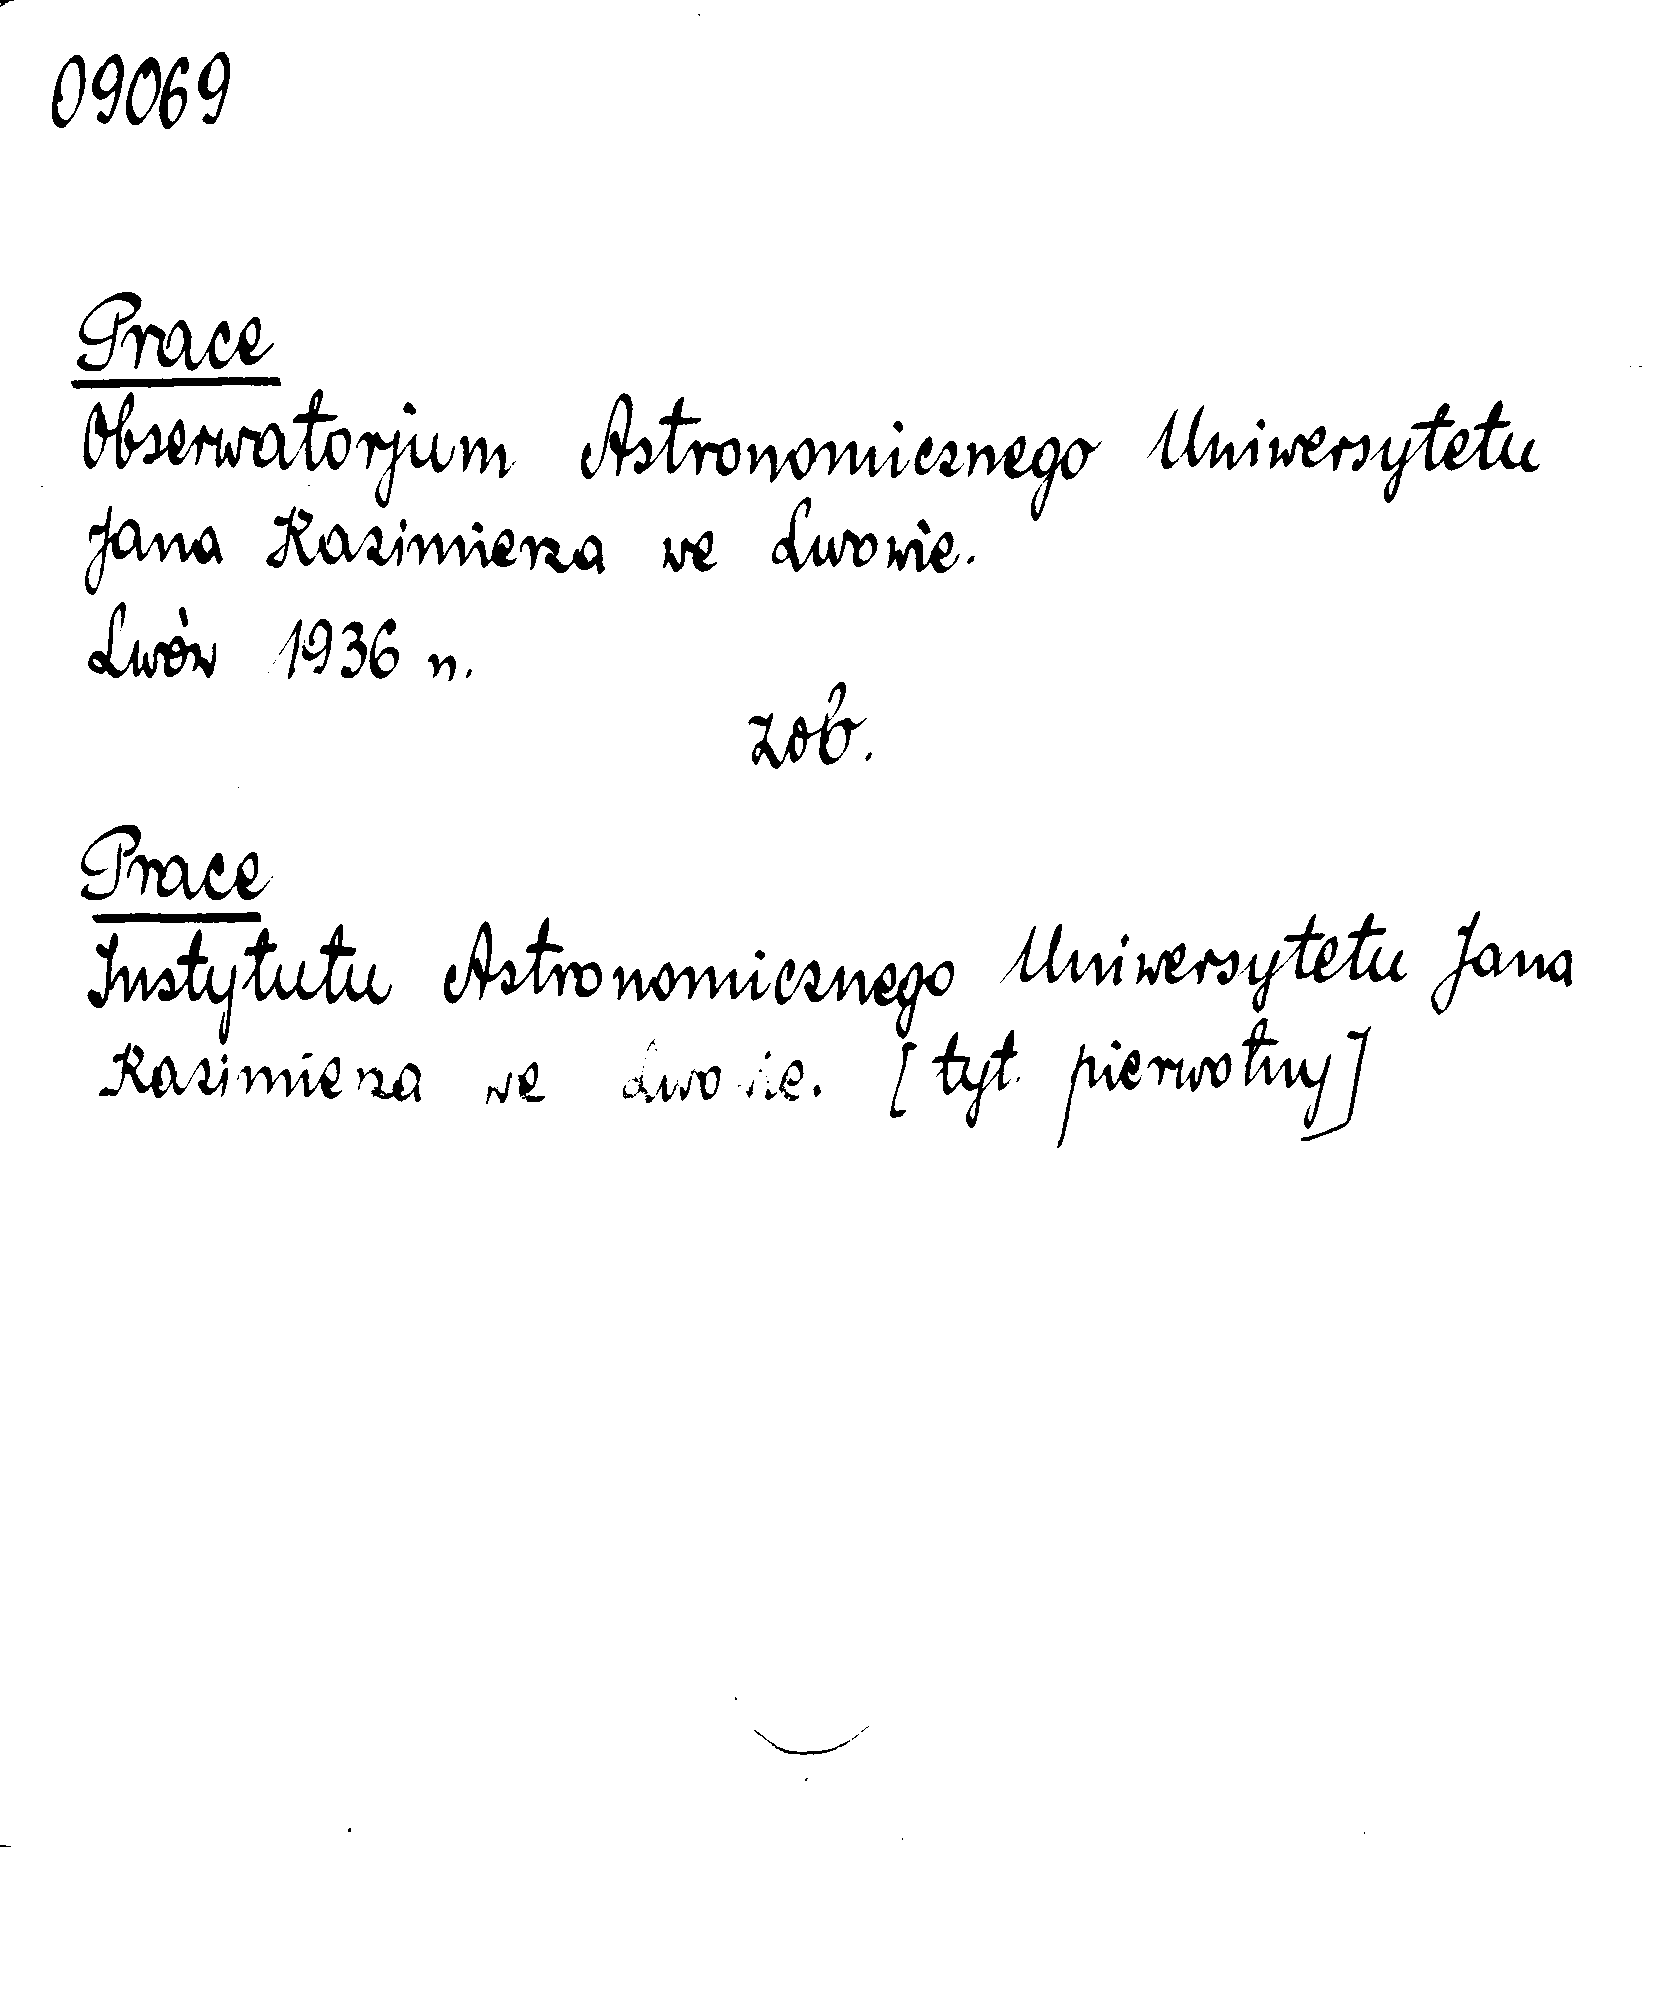 09069
Prace
Obserwatorjum Astronomicznego Uniwersytetu
Jana Kazimierza we Lwowie.
Lwów 1936 n.
zob.
Prace
Instytutu Astronomicznego Uniwersytetu Jana
Kazimierza we Lwowie. [tyt. pierwotny]